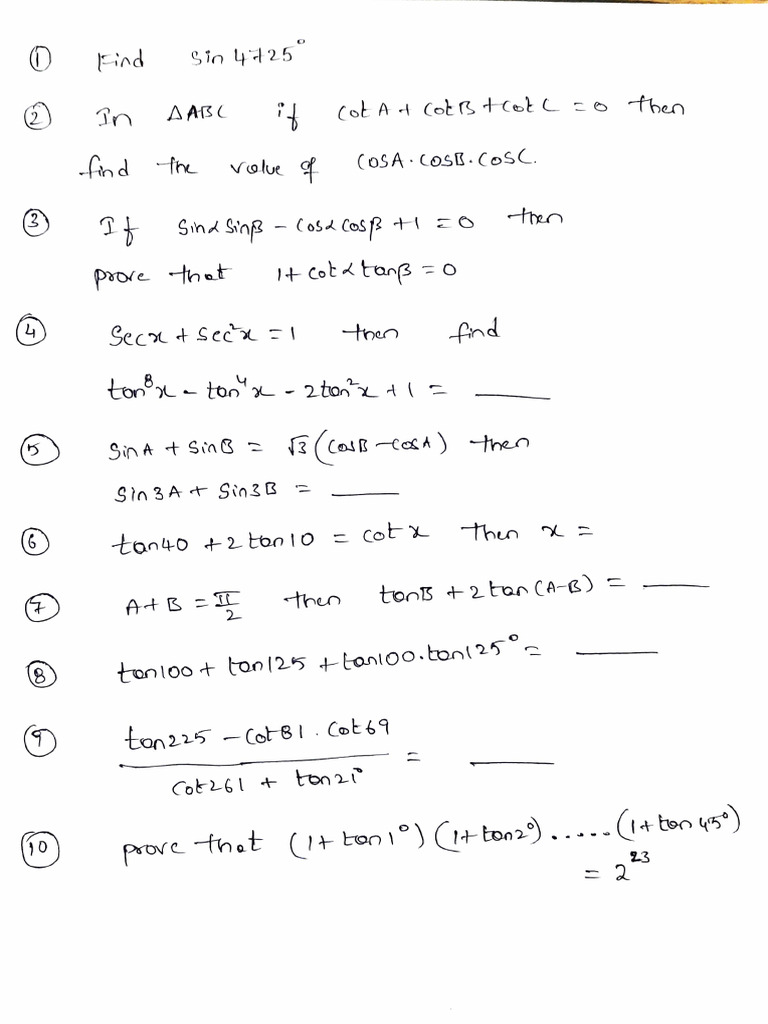 ① Find sin 4725°
② In ΔABC if cot A + cot B + cot C = 0 then
find the value of cosA·cosB·cosC.
③ If sinα sinβ - cosα cosβ + 1 = 0 then
prove that 1 + cotα tanβ = 0
④ Secx + sec²x = 1 then find
tan⁸x - tan⁴x - 2tan²x + 1 = ____
⑤ sinA + sinB = √3 (cosB - cosA) then
Sin3A + Sin3B = ____
⑥ tan40 + 2 tan10 = cot x then x =
⑦ A + B = π/2 then tanB + 2 tan(A-B) = ____
⑧ tan100 + tan125 + tan100.tan125° = ____
⑨ tan225 - cot81 . cot69
cot261 + tan21° = ____
⑩ prove that (1 + tan1°) (1 + tan2°) ...... (1 + tan45°)
= 2²³